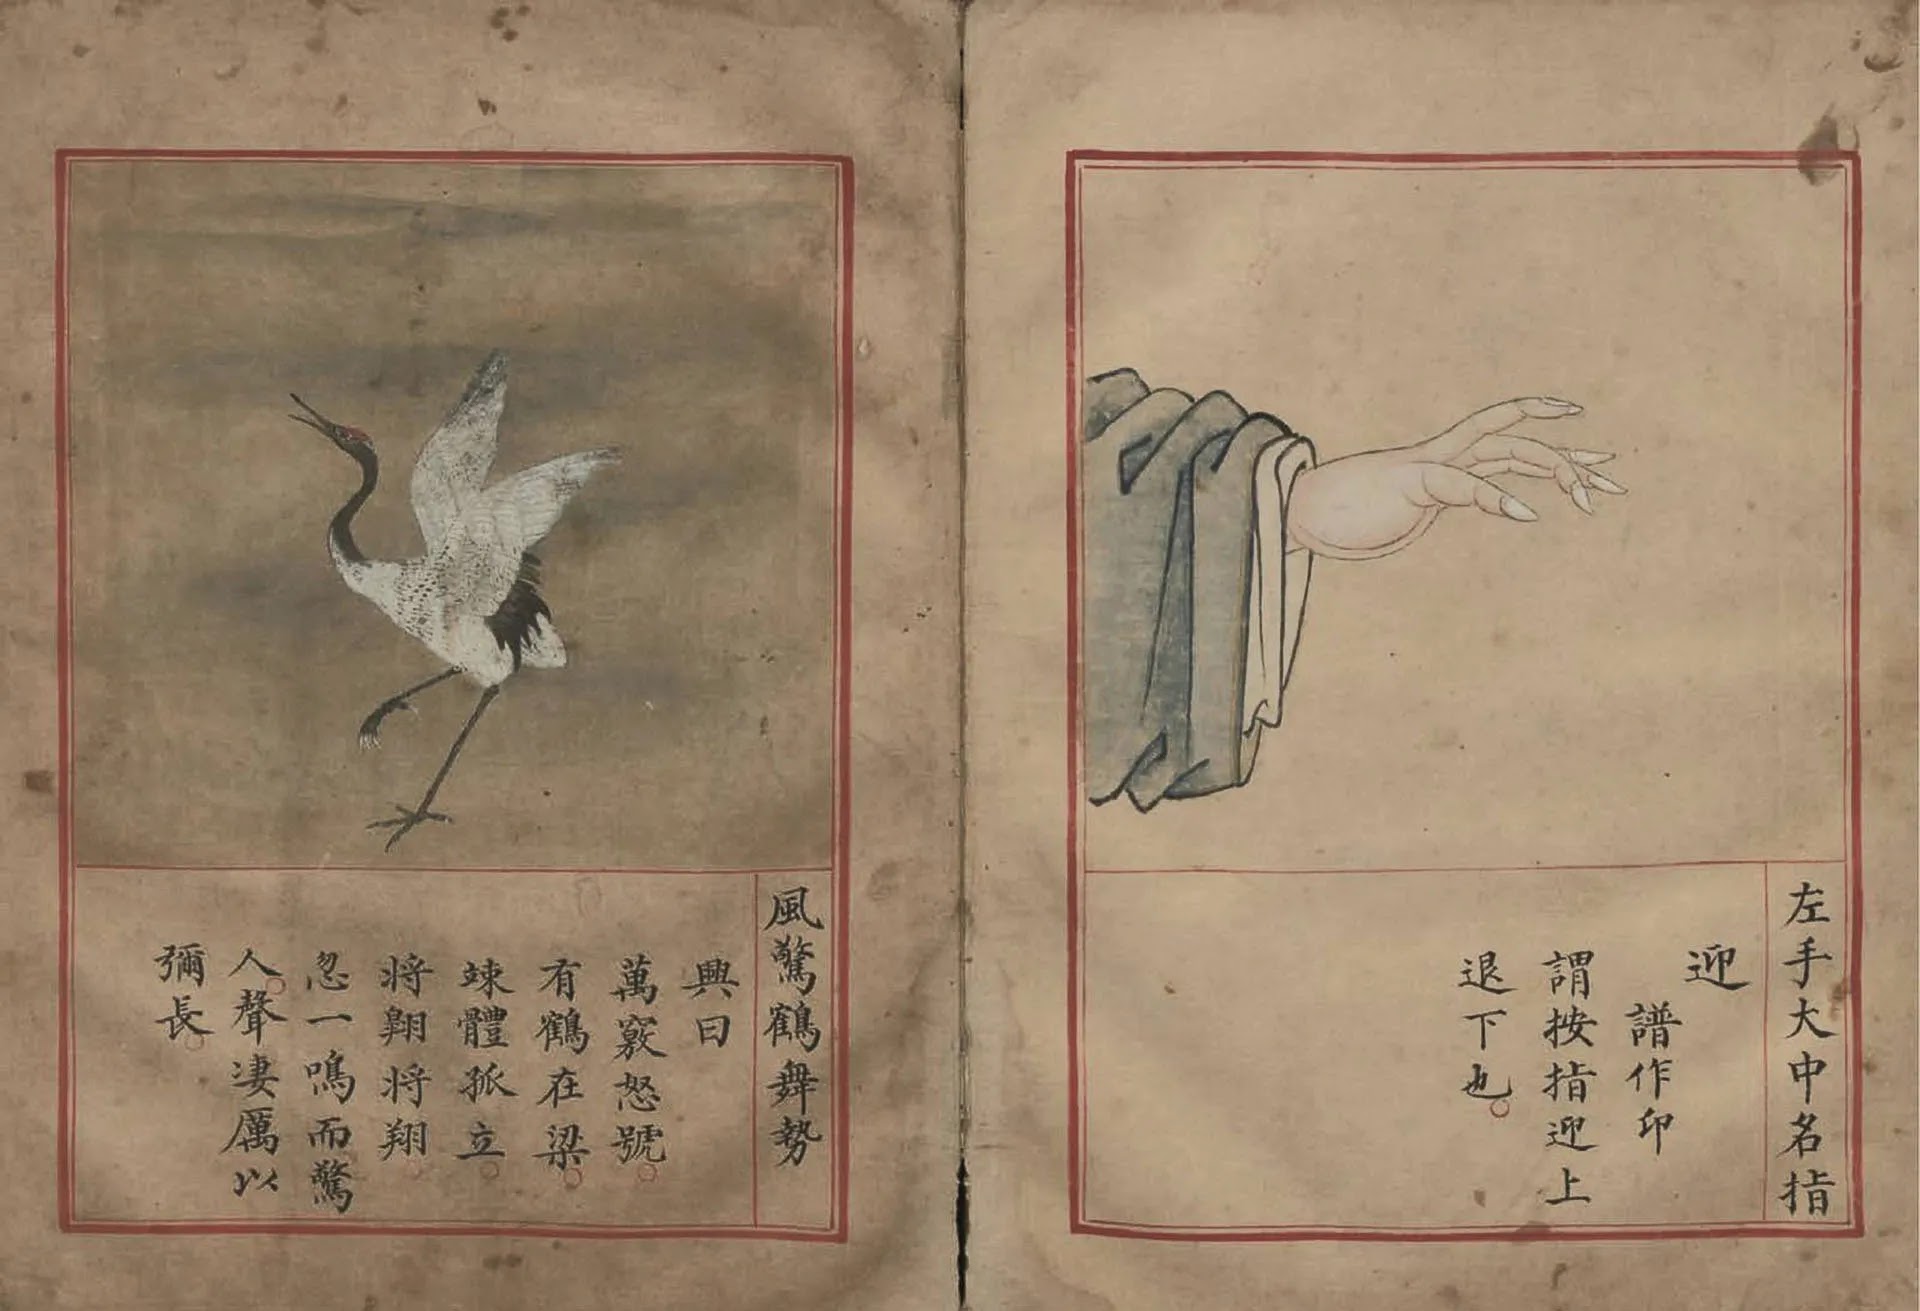 左手大中名指
迎
譜作印
謂按指迎上
退下也
風驚鶴舞勢
興曰
萬竅怒號
有鶴在梁
竦體孤立
將翺將翔
忽一鳴而驚
人聲凄厲以
彌長